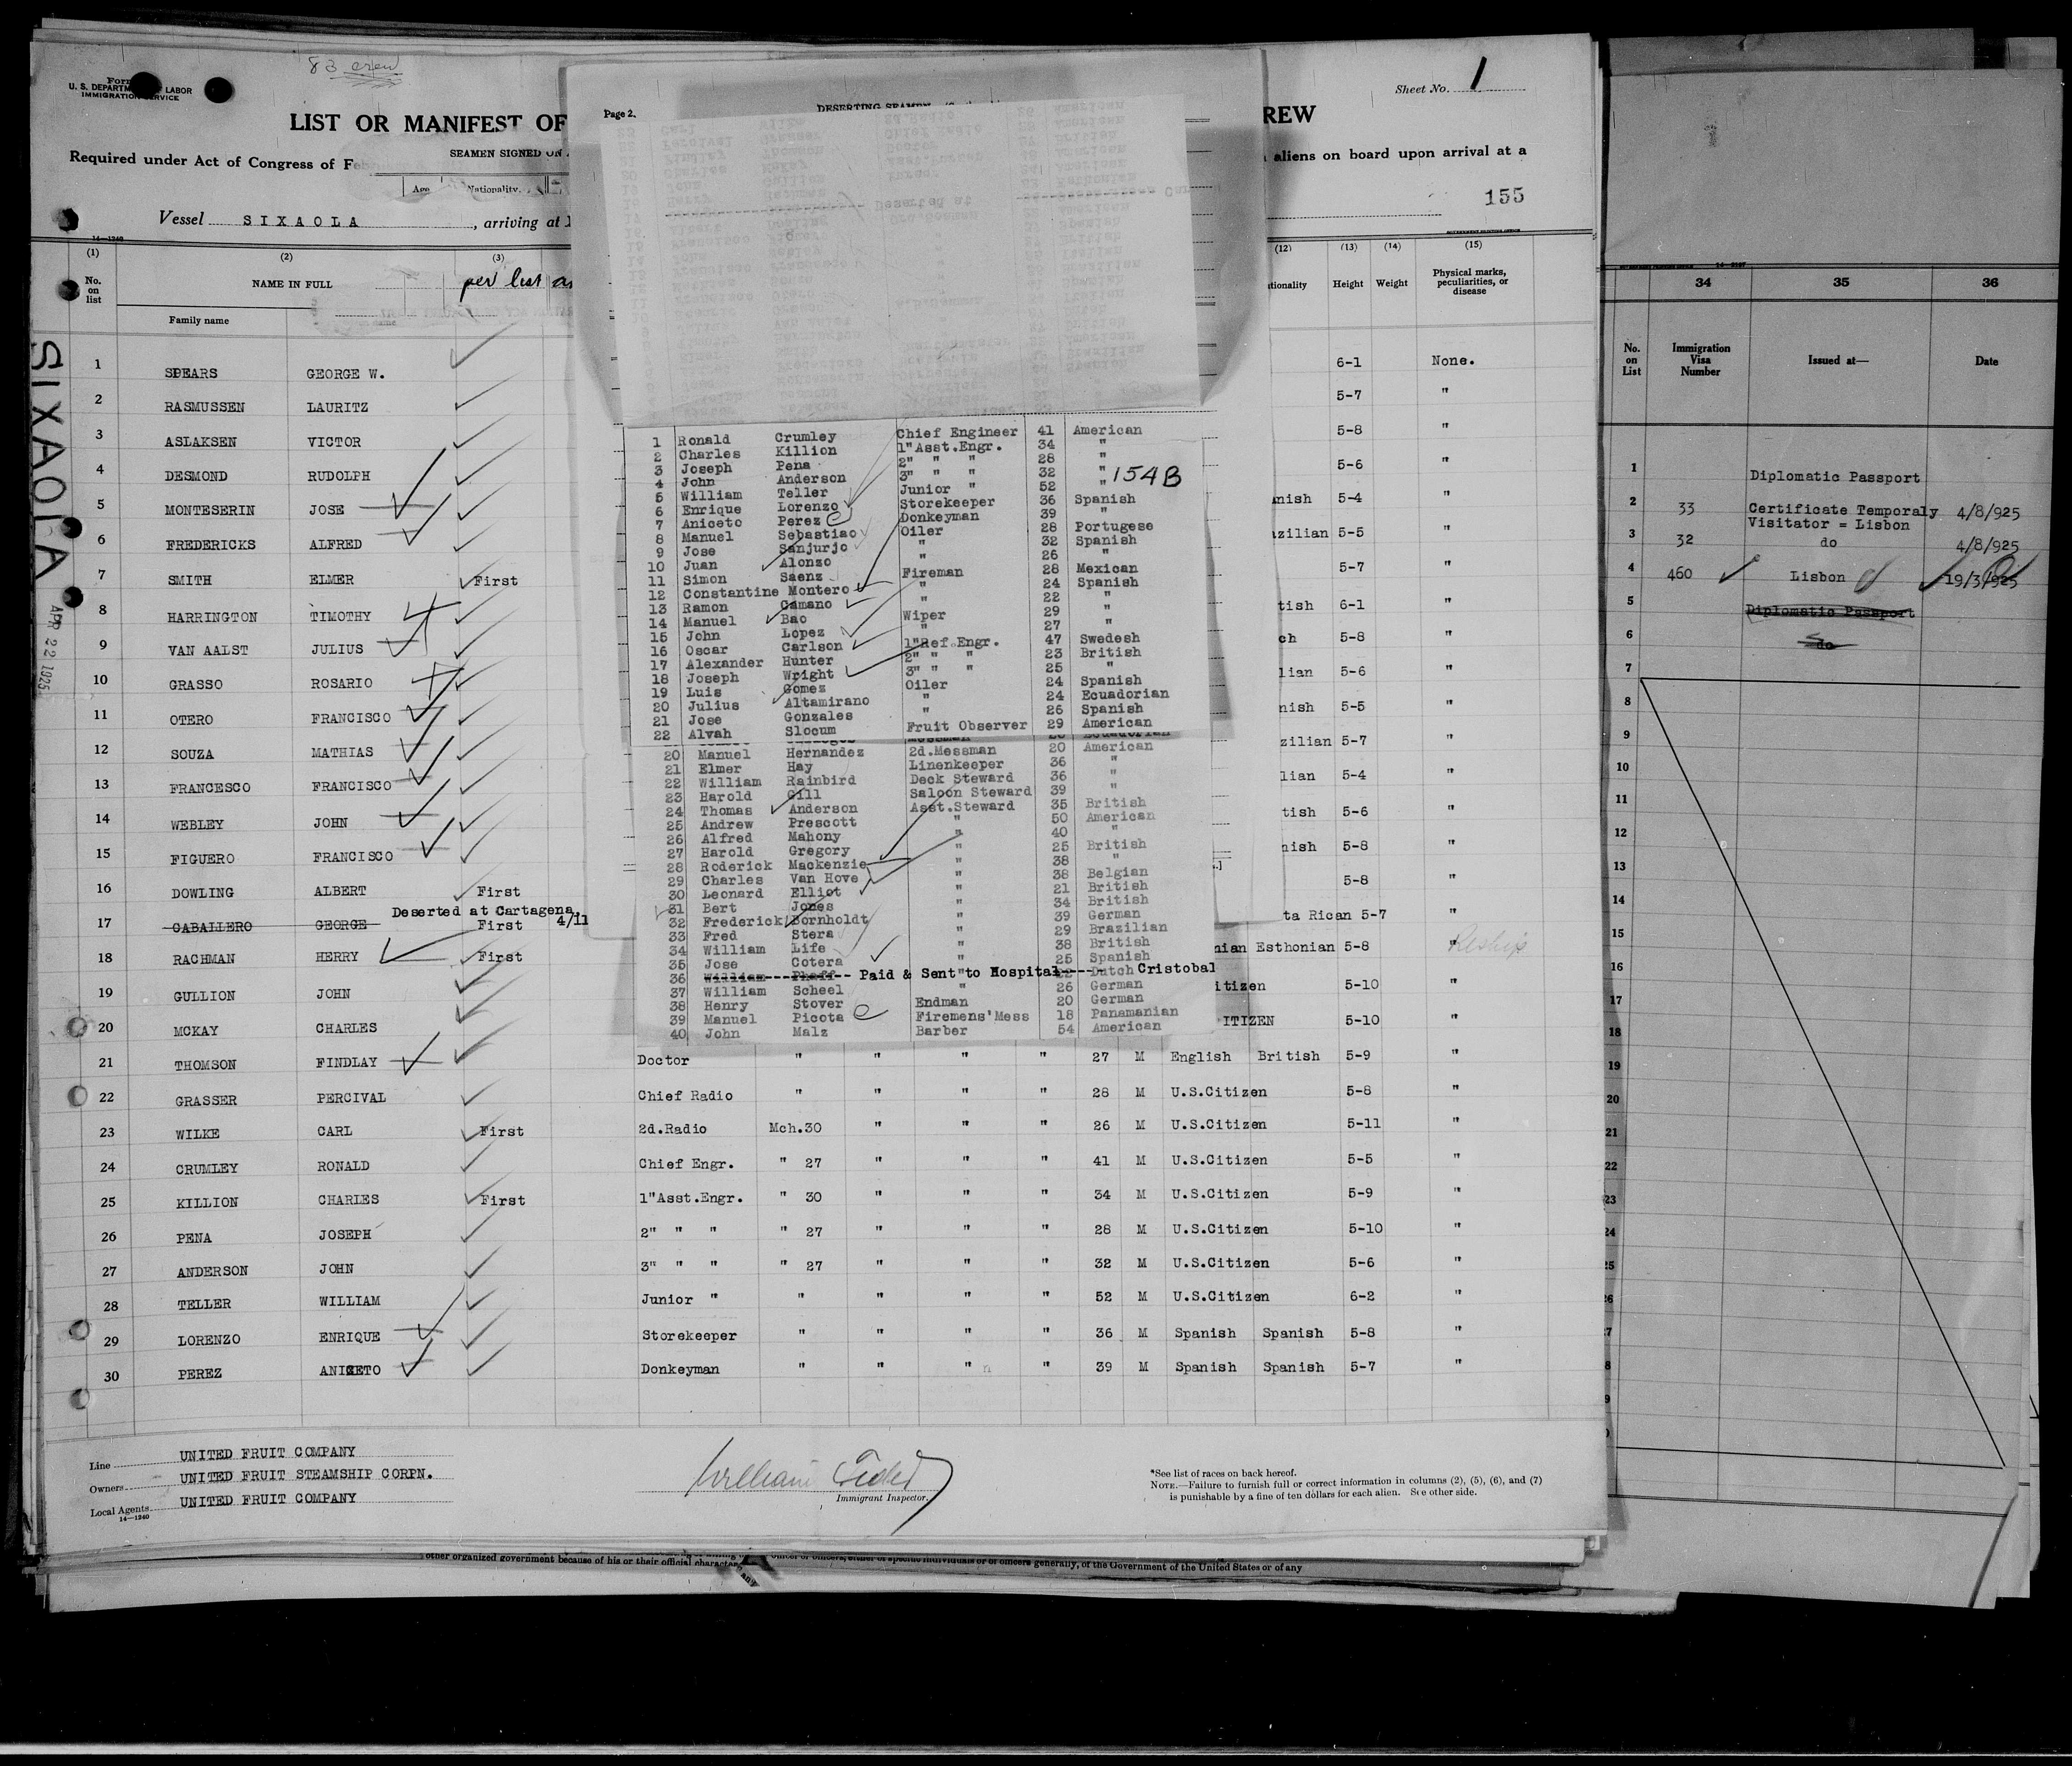 83 crew
U. S. DEPARTM LABOR
IMMIGRATION SERVICE
Sheet No. 1
LIST OR MANIFEST OF
REW
Required under Act of Congress of F
SEAMEN SIGNED ON
aliens on board upon arrival at a
Age Nationality.
155
Vessel SIXAOLA , arriving at
14—1240
(1) (2) (3) (12) (13) (14) (15)
No. on list NAME IN FULL per list Height Weight Physical marks, peculiarities, or disease
Family name
SIXAOLA
APR 22 1925
1 SPEARS GEORGE W. 6-1 None.
2 RASMUSSEN LAURITZ 5-7 "
3 ASLAKSEN VICTOR 5-8 "
4 DESMOND RUDOLPH 5-6 "
5 MONTESERIN JOSE nish 5-4 "
6 FREDERICKS ALFRED zilian 5-5 "
7 SMITH ELMER First 5-7 "
8 HARRINGTON TIMOTHY tish 6-1 "
9 VAN AALST JULIUS ch 5-8 "
10 GRASSO ROSARIO lian 5-6 "
11 OTERO FRANCISCO nish 5-5 "
12 SOUZA MATHIAS zilian 5-7 "
13 FRANCESCO FRANCISCO lian 5-4 "
14 WEBLEY JOHN tish 5-6 "
15 FIGUERO FRANCISCO nish 5-8 "
16 DOWLING ALBERT First 5-8 "
Deserted at Cartagena
17 CABALLERO GEORGE First 4/11 ta Rican 5-7 "
18 RACHMAN HERRY First nian Esthonian 5-8 " Reship
19 GULLION JOHN itizen 5-10 "
20 MCKAY CHARLES ITIZEN 5-10 "
21 THOMSON FINDLAY Doctor " " " " 27 M English British 5-9 "
22 GRASSER PERCIVAL Chief Radio " " " " 28 M U.S.Citizen 5-8 "
23 WILKE CARL First 2d.Radio Mch.30 " " " 26 M U.S.Citizen 5-11 "
24 CRUMLEY RONALD Chief Engr. " 27 " " " 41 M U.S.Citizen 5-5 "
25 KILLION CHARLES First 1"Asst.Engr. " 30 " " " 34 M U.S.Citizen 5-9 "
26 PENA JOSEPH 2" " " " 27 " " " 28 M U.S.Citizen 5-10 "
27 ANDERSON JOHN 3" " " " 27 " " " 32 M U.S.Citizen 5-6 "
28 TELLER WILLIAM Junior " " " " " 52 M U.S.Citizen 6-2 "
29 LORENZO ENRIQUE Storekeeper " " " " 36 M Spanish Spanish 5-8 "
30 PEREZ ANICETO Donkeyman " " " " 39 M Spanish Spanish 5-7 "
Page 2. DESERTING SEAMEN
1 Ronald Crumley Chief Engineer 41 American
2 Charles Killion 1"Asst.Engr. 34 "
3 Joseph Pena 2" " " 28 "
4 John Anderson 3" " " 32 "
154B
5 William Teller Junior " 52 "
6 Enrique Lorenzo Storekeeper 36 Spanish
7 Aniceto Perez Donkeyman 39 "
8 Manuel Sebastiao Oiler 28 Portugese
9 Jose Sanjurjo " 32 Spanish
10 Juan Alonzo " 26 "
11 Simon Saenz Fireman 28 Mexican
12 Constantine Montero " 24 Spanish
13 Ramon Camano " 22 "
14 Manuel Bao Wiper 29 "
15 John Lopez " 27 "
16 Oscar Carlson 1"Ref.Engr. 47 Swedesh
17 Alexander Hunter 2" " " 23 British
18 Joseph Wright 3" " " 25 "
19 Luis Gomez Oiler 24 Spanish
20 Julius Altamirano " 24 Ecuadorian
21 Jose Gonzales " 26 Spanish
22 Alvah Slocum Fruit Observer 29 American
20 Manuel Hernandez 2d.Messman 20 American
21 Elmer Hay Linenkeeper 36 "
22 William Rainbird Deck Steward 36 "
23 Harold Gill Saloon Steward 39 "
24 Thomas Anderson Asst.Steward 35 British
25 Andrew Prescott " 50 American
26 Alfred Mahony " 40 "
27 Harold Gregory " 25 British
28 Roderick Mackenzie " 38 "
29 Charles Van Hove " 38 Belgian
30 Leonard Elliot " 21 British
31 Bert Jones " 34 British
32 Frederick Bornholdt " 39 German
33 Fred Stera " 29 Brazilian
34 William Life " 38 British
35 Jose Cotera " 25 Spanish
36 William Phaff Paid & Sent to Hospital 22 Dutch Cristobal
37 William Scheel " 26 German
38 Henry Stover Endman 20 German
39 Manuel Picota Firemens'Mess 18 Panamanian
40 John Malz Barber 54 American
Line UNITED FRUIT COMPANY
Owners UNITED FRUIT STEAMSHIP CORPN.
Local Agents UNITED FRUIT COMPANY
14—1240
Immigrant Inspector.
*See list of races on back hereof.
NOTE.—Failure to furnish full or correct information in columns (2), (5), (6), and (7)
is punishable by a fine of ten dollars for each alien. See other side.
other organized government because of his or their official character
officer or officers, either of specific individuals or of officers generally, of the Government of the United States or of any
34 35 36
No. on List Immigration Visa Number Issued at— Date
1 Diplomatic Passport
2 33 Certificate Temporaly 4/8/925
Visitator = Lisbon
3 32 do 4/8/925
4 460 Lisbon 19/3/925
5 Diplomatic Passport
6 do
7
8
9
10
11
12
13
14
15
16
17
18
19
20
21
22
23
24